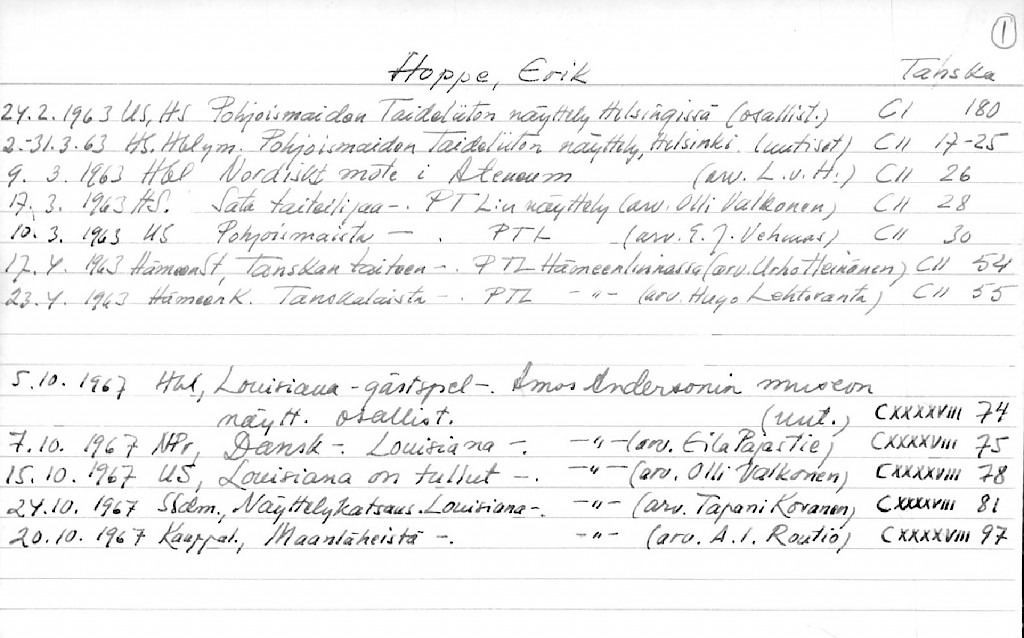 1
Hoppe, Erik Tanska
24.2.1963 US, HS Pohjoismaiden Taideliiton näyttely Helsingissä (osallist.) CI 180
2.-31.3.63 HS. Hbl ym. Pohjoismaiden Taideliiton näyttely, Helsinki. (uutiset) CII 17-25
9. 3. 1963 Hbl Nordiskt möte i Ateneum (arv. L.v.H.) CII 26
17. 3. 1963 HS. Sata taiteilijaa -. PTL:n näyttely (arv. Olli Valkonen) CII 28
10. 3. 1963 US Pohjoismaista — . PTL (arv. E. J. Vehmas) CII 30
17. 4. 1963 HämeenSt, Tanskan taiteen -. PTL Hämeenlinnassa (arv. Urho Heinänen) CII 54
23. 4. 1963 Hämeenk. Tanskalaista -. PTL -"- (arv. Hugo Lehtoranta) CII 55
5.10. 1967 Hbl, Louisiana-gästspel -. Amos Andersonin museon
näytt. osallist. (uut.) CXXXXVIII 74
7.10. 1967 NPr, Dansk -. Louisiana -. -"- (arv. Eila Pajastie) CXXXXVIII 75
15.10. 1967 US, Louisiana on tullut -. -"- (arv. Olli Valkonen) CXXXXVIII 78
24.10. 1967 SSdm., Näyttelykatsaus. Louisiana -. -"- (arv. Tapani Kovanen) CXXXXVIII 81
20.10. 1967 Kauppal., Maanläheistä -. -"- (arv. A.I. Routio) CXXXXVIII 97